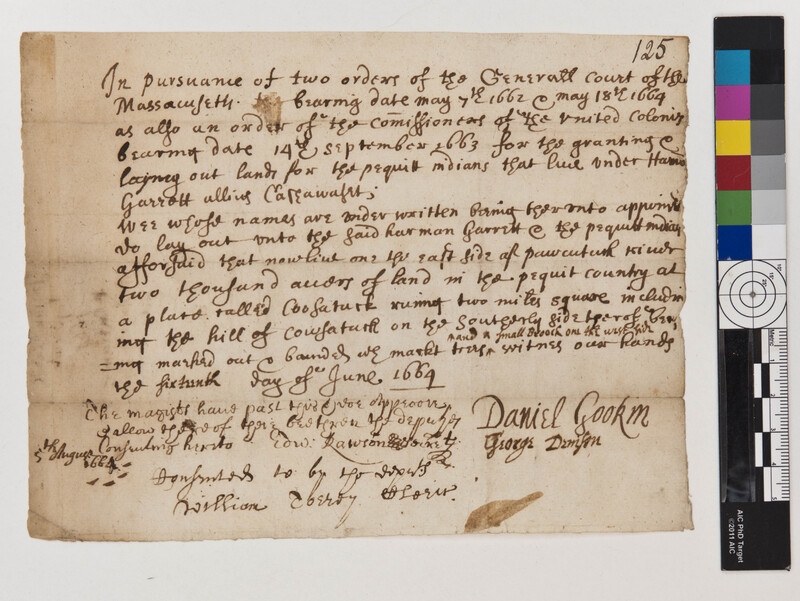 125
In pursuance of two orders of the Generall Court of the
Massacusetts bearing date may 7th 1662 & may 18th 1664
as also an order of the Comissioners of the united Colonis
bearing date 14th September 1663 for the granting &
laying out lands for the pequitt indians that live under Harmo
Garrett allius Cashawasht;
Wee whose names are under written being therunto appointed
do lay out unto the said harman Garrett & the pequitt indians
afforsaid that now live one the east side of pawcutuck River
two thousand accers of land in the pequit country at
a place called Coosatuck runing two miles square includin
ing the hill of Cowsatuck on the Southerly side therof
and a small brook one the west side
ing marked out & bounded wth markt trees witnes our hands
the sixteenth day of June 1664
The magists have past this
Consenting hereto Edw: Rawson Secret
5th August
1664
Daniel Gookin
George Denison
Consented to by the deputs
William Cleric
AIC PhD Target
©2011 AIC